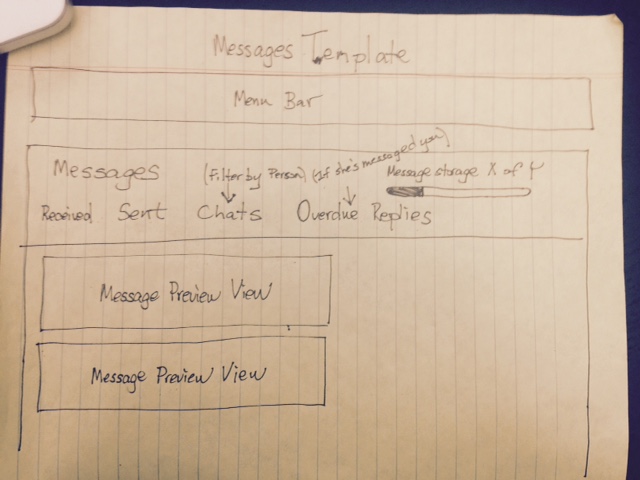 Messages Template
Menu Bar
Messages (Filter by Person) (If she's messaged you) Message storage X of Y
Received Sent Chats Overdue Replies
Message Preview View
Message Preview View